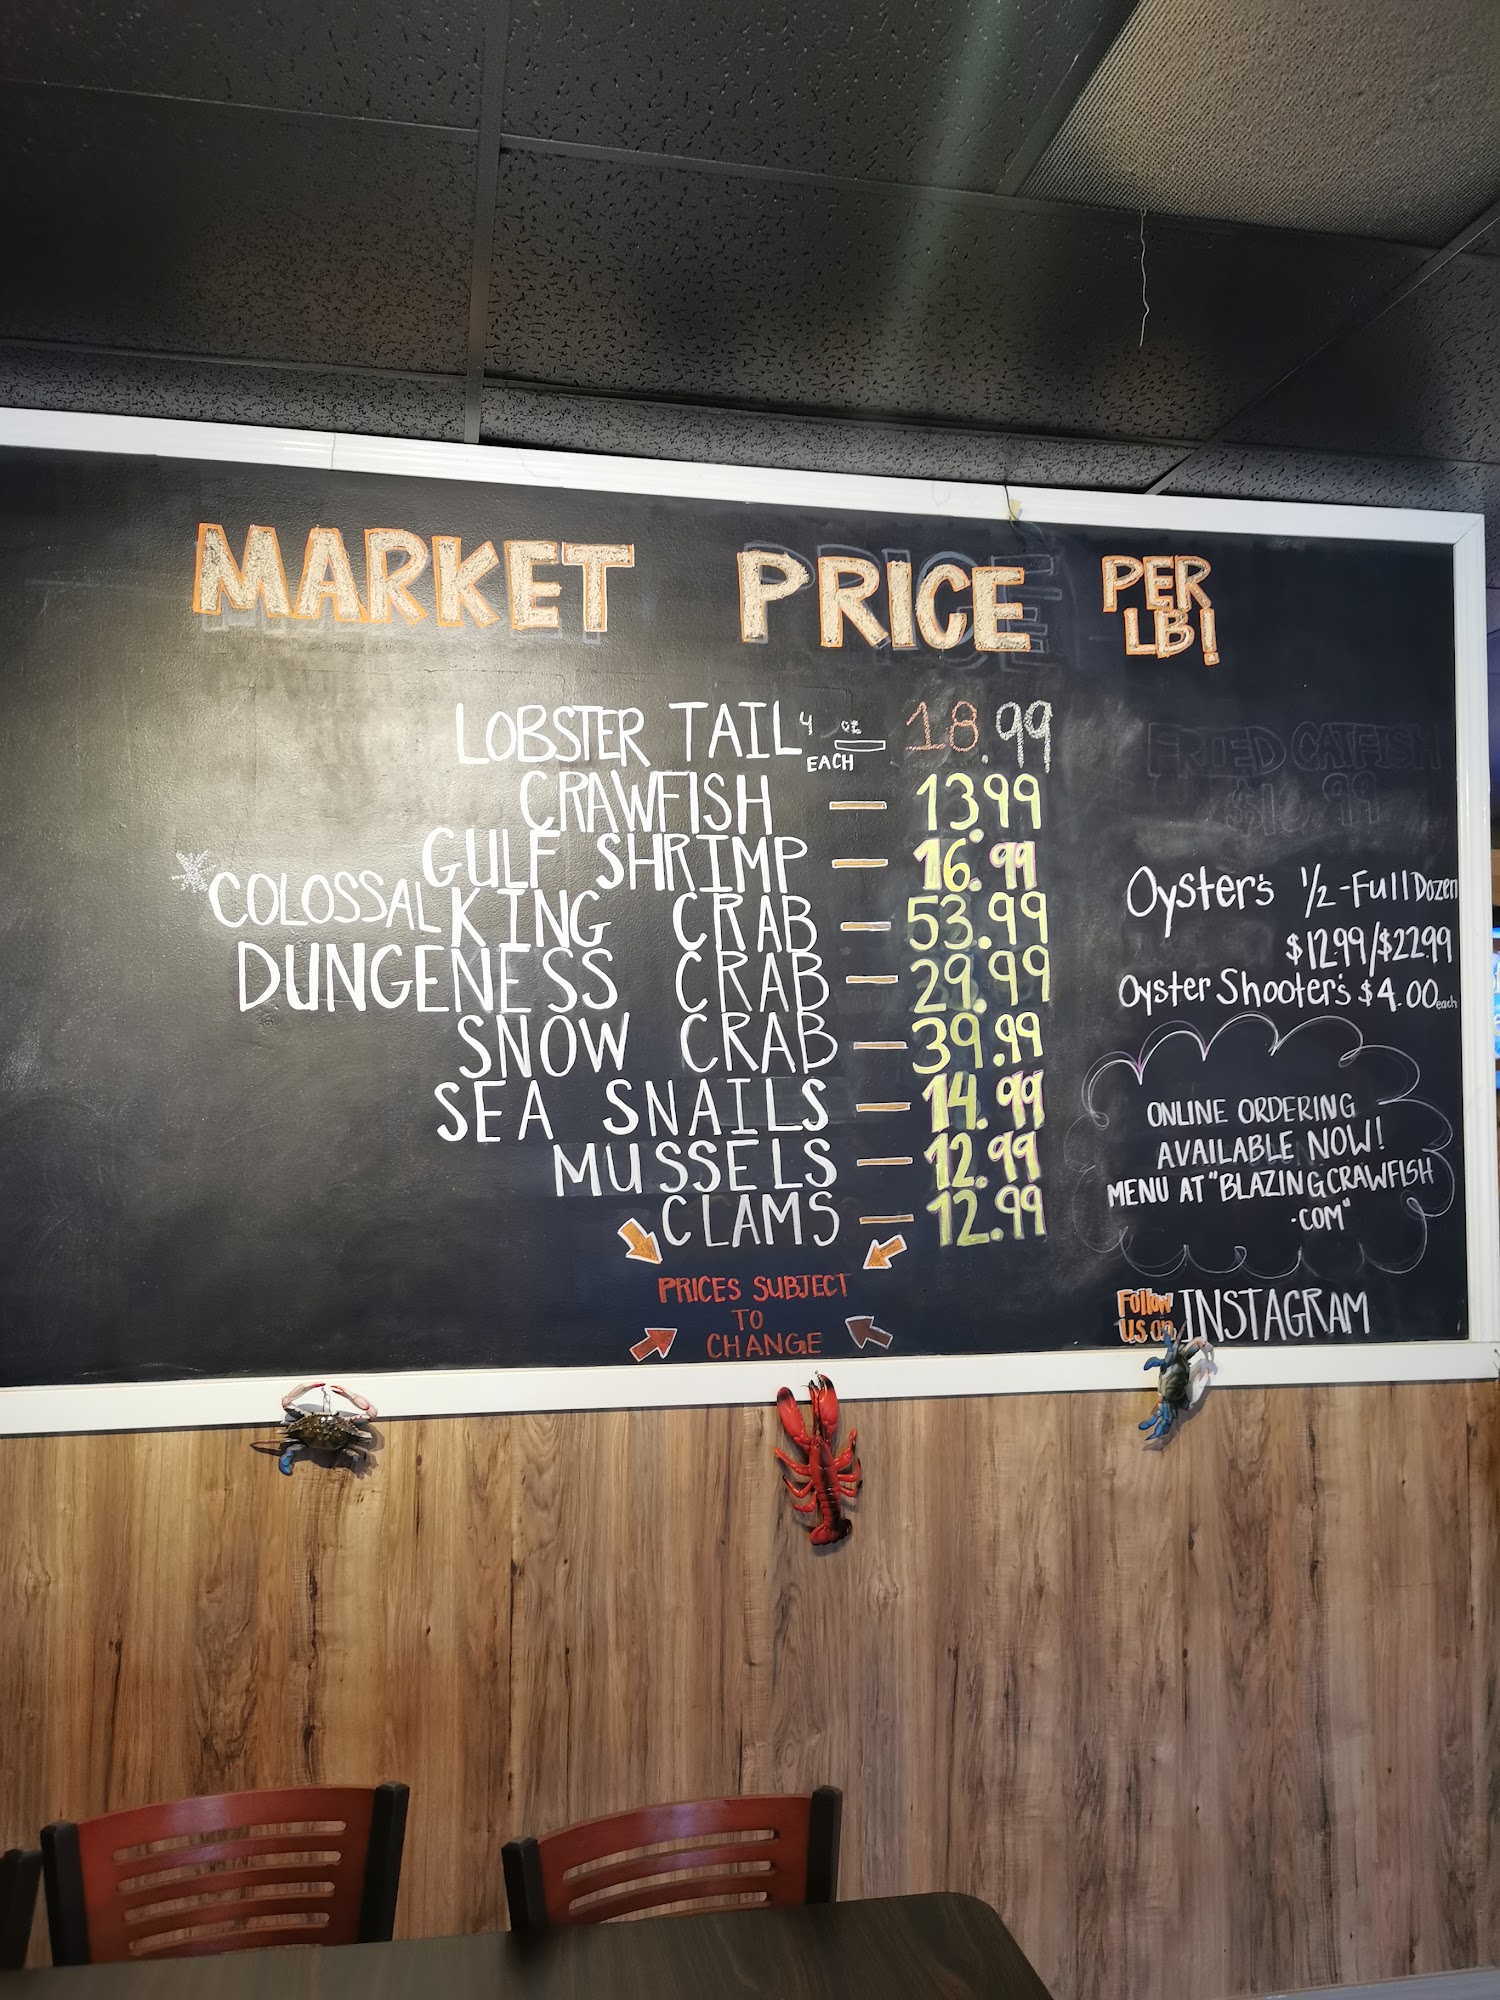 MARKET PRICE PER LB!
LOBSTER TAIL 4 oz EACH — 18.99
CRAWFISH — 13.99
GULF SHRIMP — 16.99
*COLOSSAL KING CRAB — 53.99
DUNGENESS CRAB — 29.99
SNOW CRAB — 39.99
SEA SNAILS — 14.99
MUSSELS — 12.99
CLAMS — 12.99
PRICES SUBJECT
TO
CHANGE
FRIED CATFISH
Oyster's 1/2 - Full Dozen
$12.99/$22.99
Oyster Shooter's $4.00 each
ONLINE ORDERING
AVAILABLE NOW!
MENU AT "BLAZINGCRAWFISH
.COM"
Follow us on INSTAGRAM